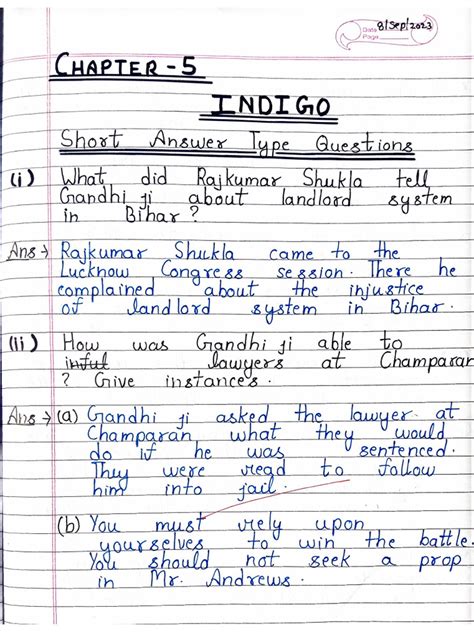 Date 8/Sep/2023
Page
CHAPTER - 5
INDIGO
Short Answer Type Questions
(i) What did Rajkumar Shukla tell
Gandhi ji about landlord system
in Bihar ?
Ans → Rajkumar Shukla came to the
Lucknow Congress session. There he
complained about the injustice
of landlord system in Bihar.
(ii) How was Gandhi ji able to
inful lawyers at Champaran
? Give instances.
Ans → (a) Gandhi ji asked the lawyer at
Champaran what they would
do if he was sentenced.
They were read to follow
him into jail.
(b) You must rely upon
yourselves to win the battle.
You should not seek a prop
in Mr. Andrews.